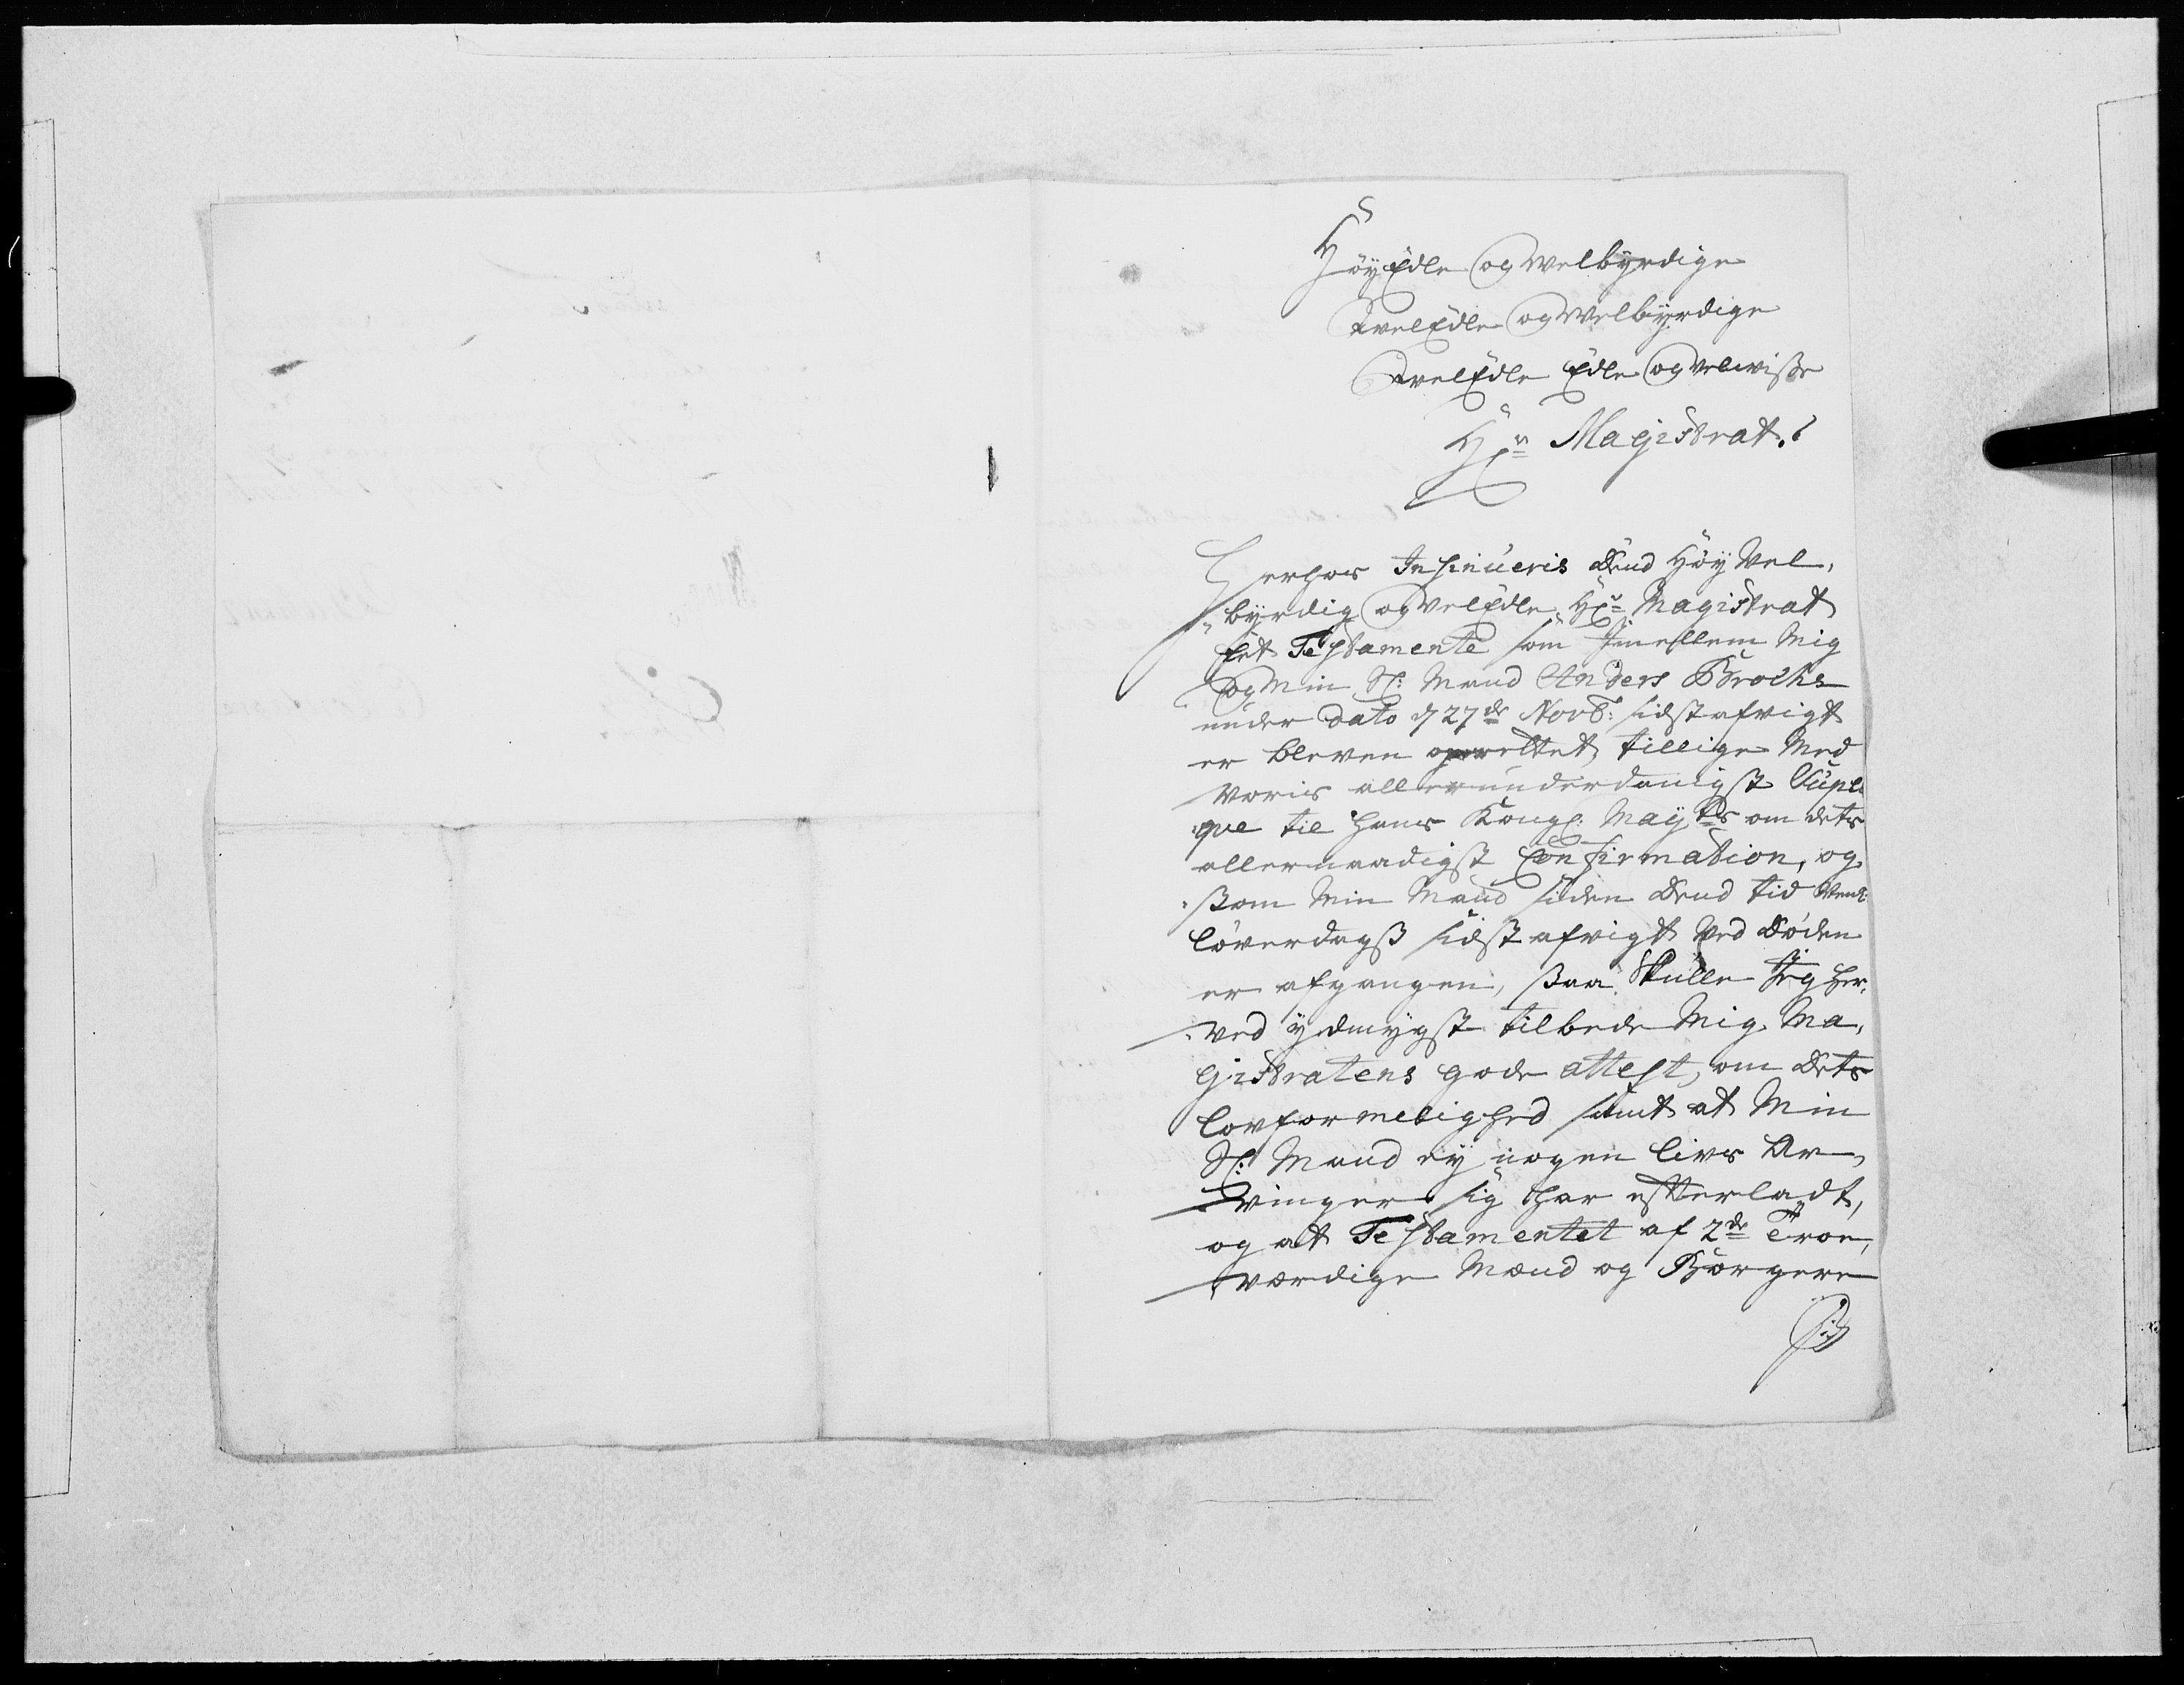 HöyEdle og Welbyrdige
WelEdle og Welbyrdige
WelEdle Edle og velviise
Hrr Magistrat!
Herhos Insinueris dend HöyVel,
byrdig og VelEdle Hrr Magistrat
Eet Testamente som Jmellem Mig
og Min Sl: Mand Anders Brochs
under dato d 27de Novb: sidst afvigt
er bleven oprettet, tillige Med
voris allerunderdanigst Supli
que til hans Kongl: Mayts om dets
allernaadigst Confirmation, og
som Min Mand siden dend tid
löverdags sidst afvigt ved döden
er afgangen, saa skulle Jeg her,
ved ydmygst tilbede Mig Ma,
gistratens gode attest, om dets
lovformelighed samt at Min
Sl: Mand ey nogen livs Ar,
vinger sig har efterladt,
og at Testamentet af 2de troe,
værdige Mænd og Borgere